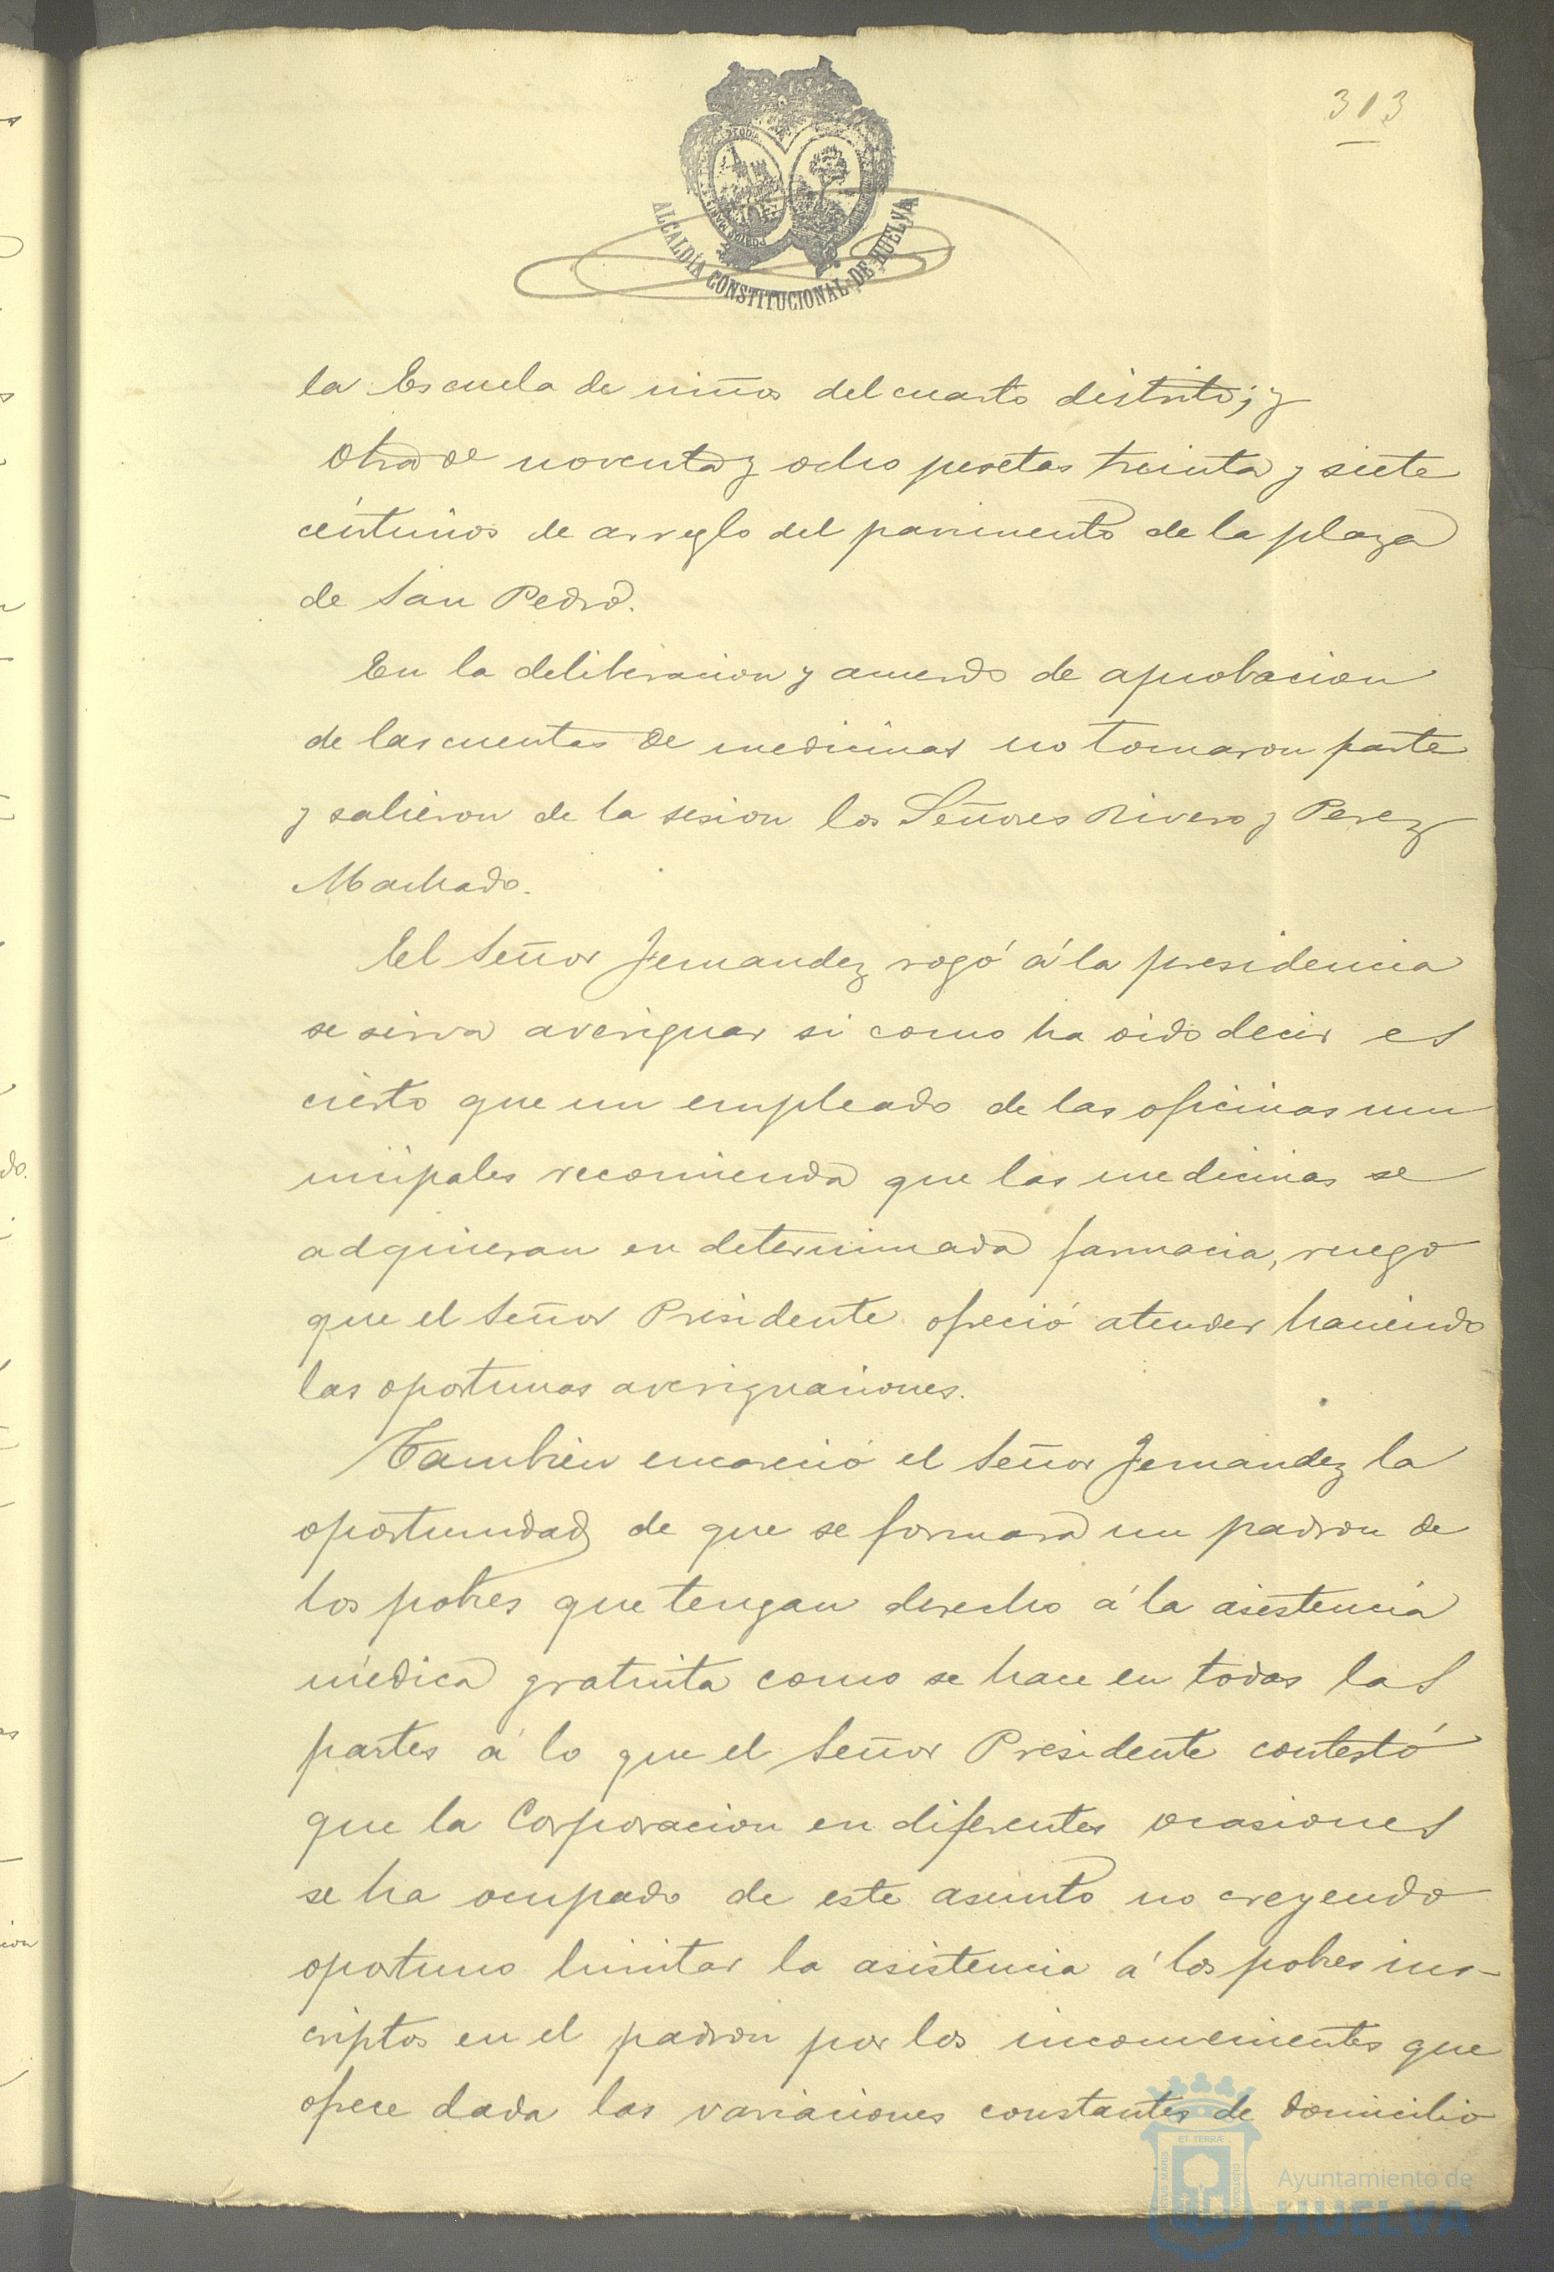 313
ALCALDÍA CONSTITUCIONAL DE HUELVA
la Escuela de niños del cuarto distrito; y
otra de noventa y ocho pesetas treinta y siete
céntimos de arreglo del pavimento de la plaza
de San Pedro.
En la deliberacion y acuerdo de aprobacion
de las cuentas de medicinas no tomaron parte
y salieron de la sesion los Señores Rivero y Perez
Machado.
El Señor Fernandez rogó á la presidencia
se sirva averiguar si como ha oido decir es
cierto que un empleado de las oficinas mu
nicipales recomienda que las medicinas se
adquieran en determinada farmacia, ruego
que el Señor Presidente ofreció atender haciendo
las oportunas averiguaciones.
Tambien encareció el Señor Fernandez la
oportunidad de que se formara un padron de
los pobres que tengan derecho á la asistencia
médica gratuita como se hace en todas las
partes á lo que el Señor Presidente contestó
que la Corporacion en diferentes ocasiones
se ha ocupado de este asunto no creyendo
oportuno limitar la asistencia á los pobres ins-
criptos en el padron por los inconvenientes que
ofrece dada las variaciones constantes de domicilio
Ayuntamiento de
HUELVA